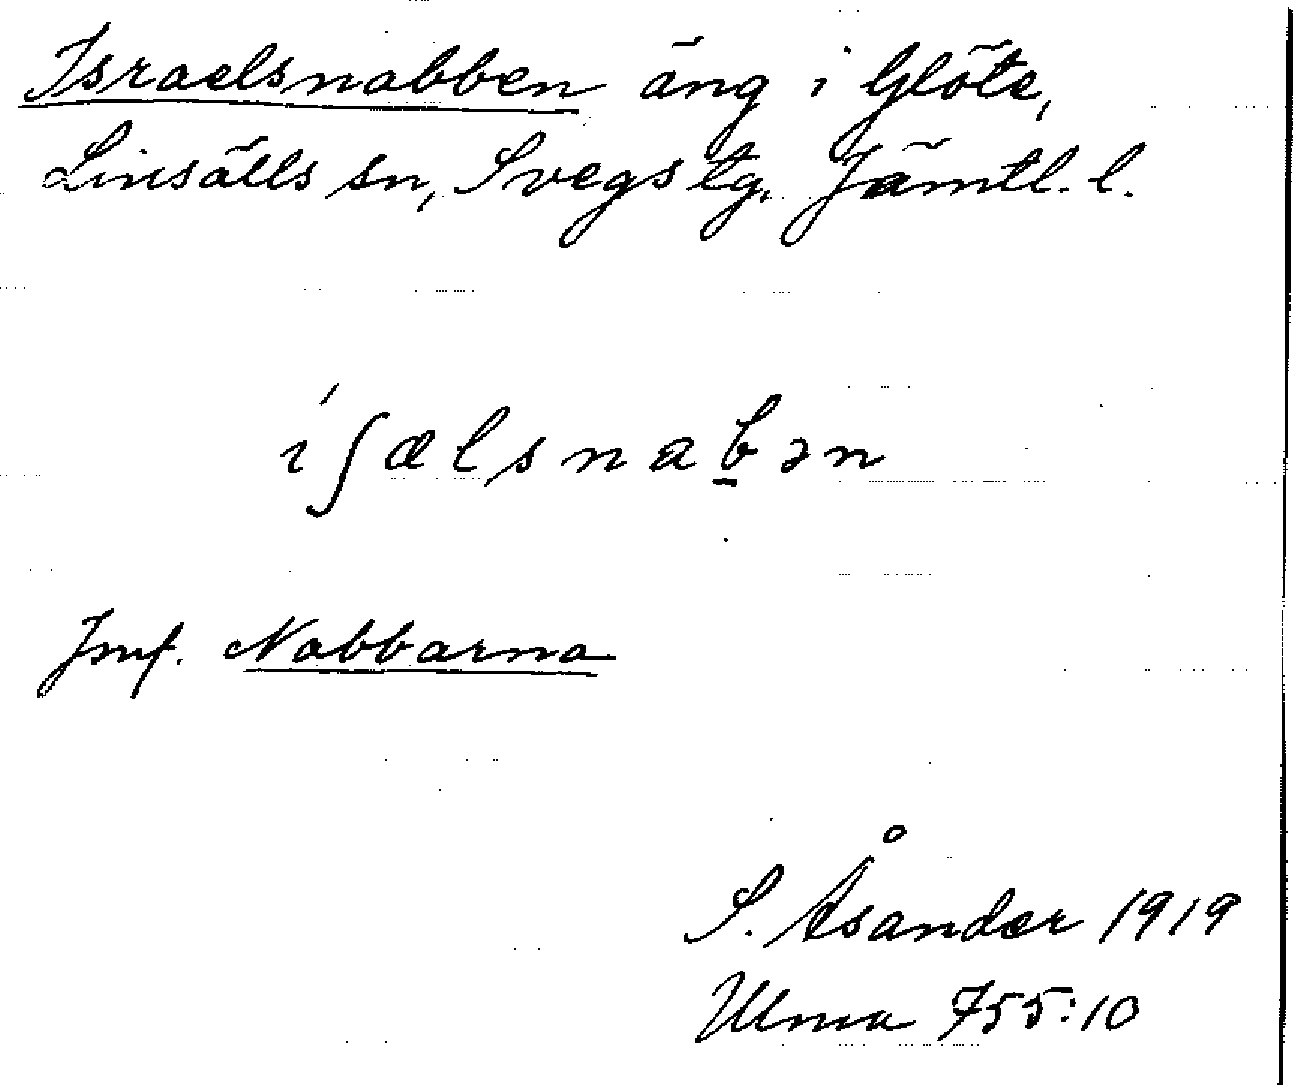 Israelsnabben äng i Glöte,
Linsälls sn, Svegs tg. Jämtl. l.
íʃælsnab̲ən
Jmf. Nabbarna
S. Åsander 1919
Ulma 755:10